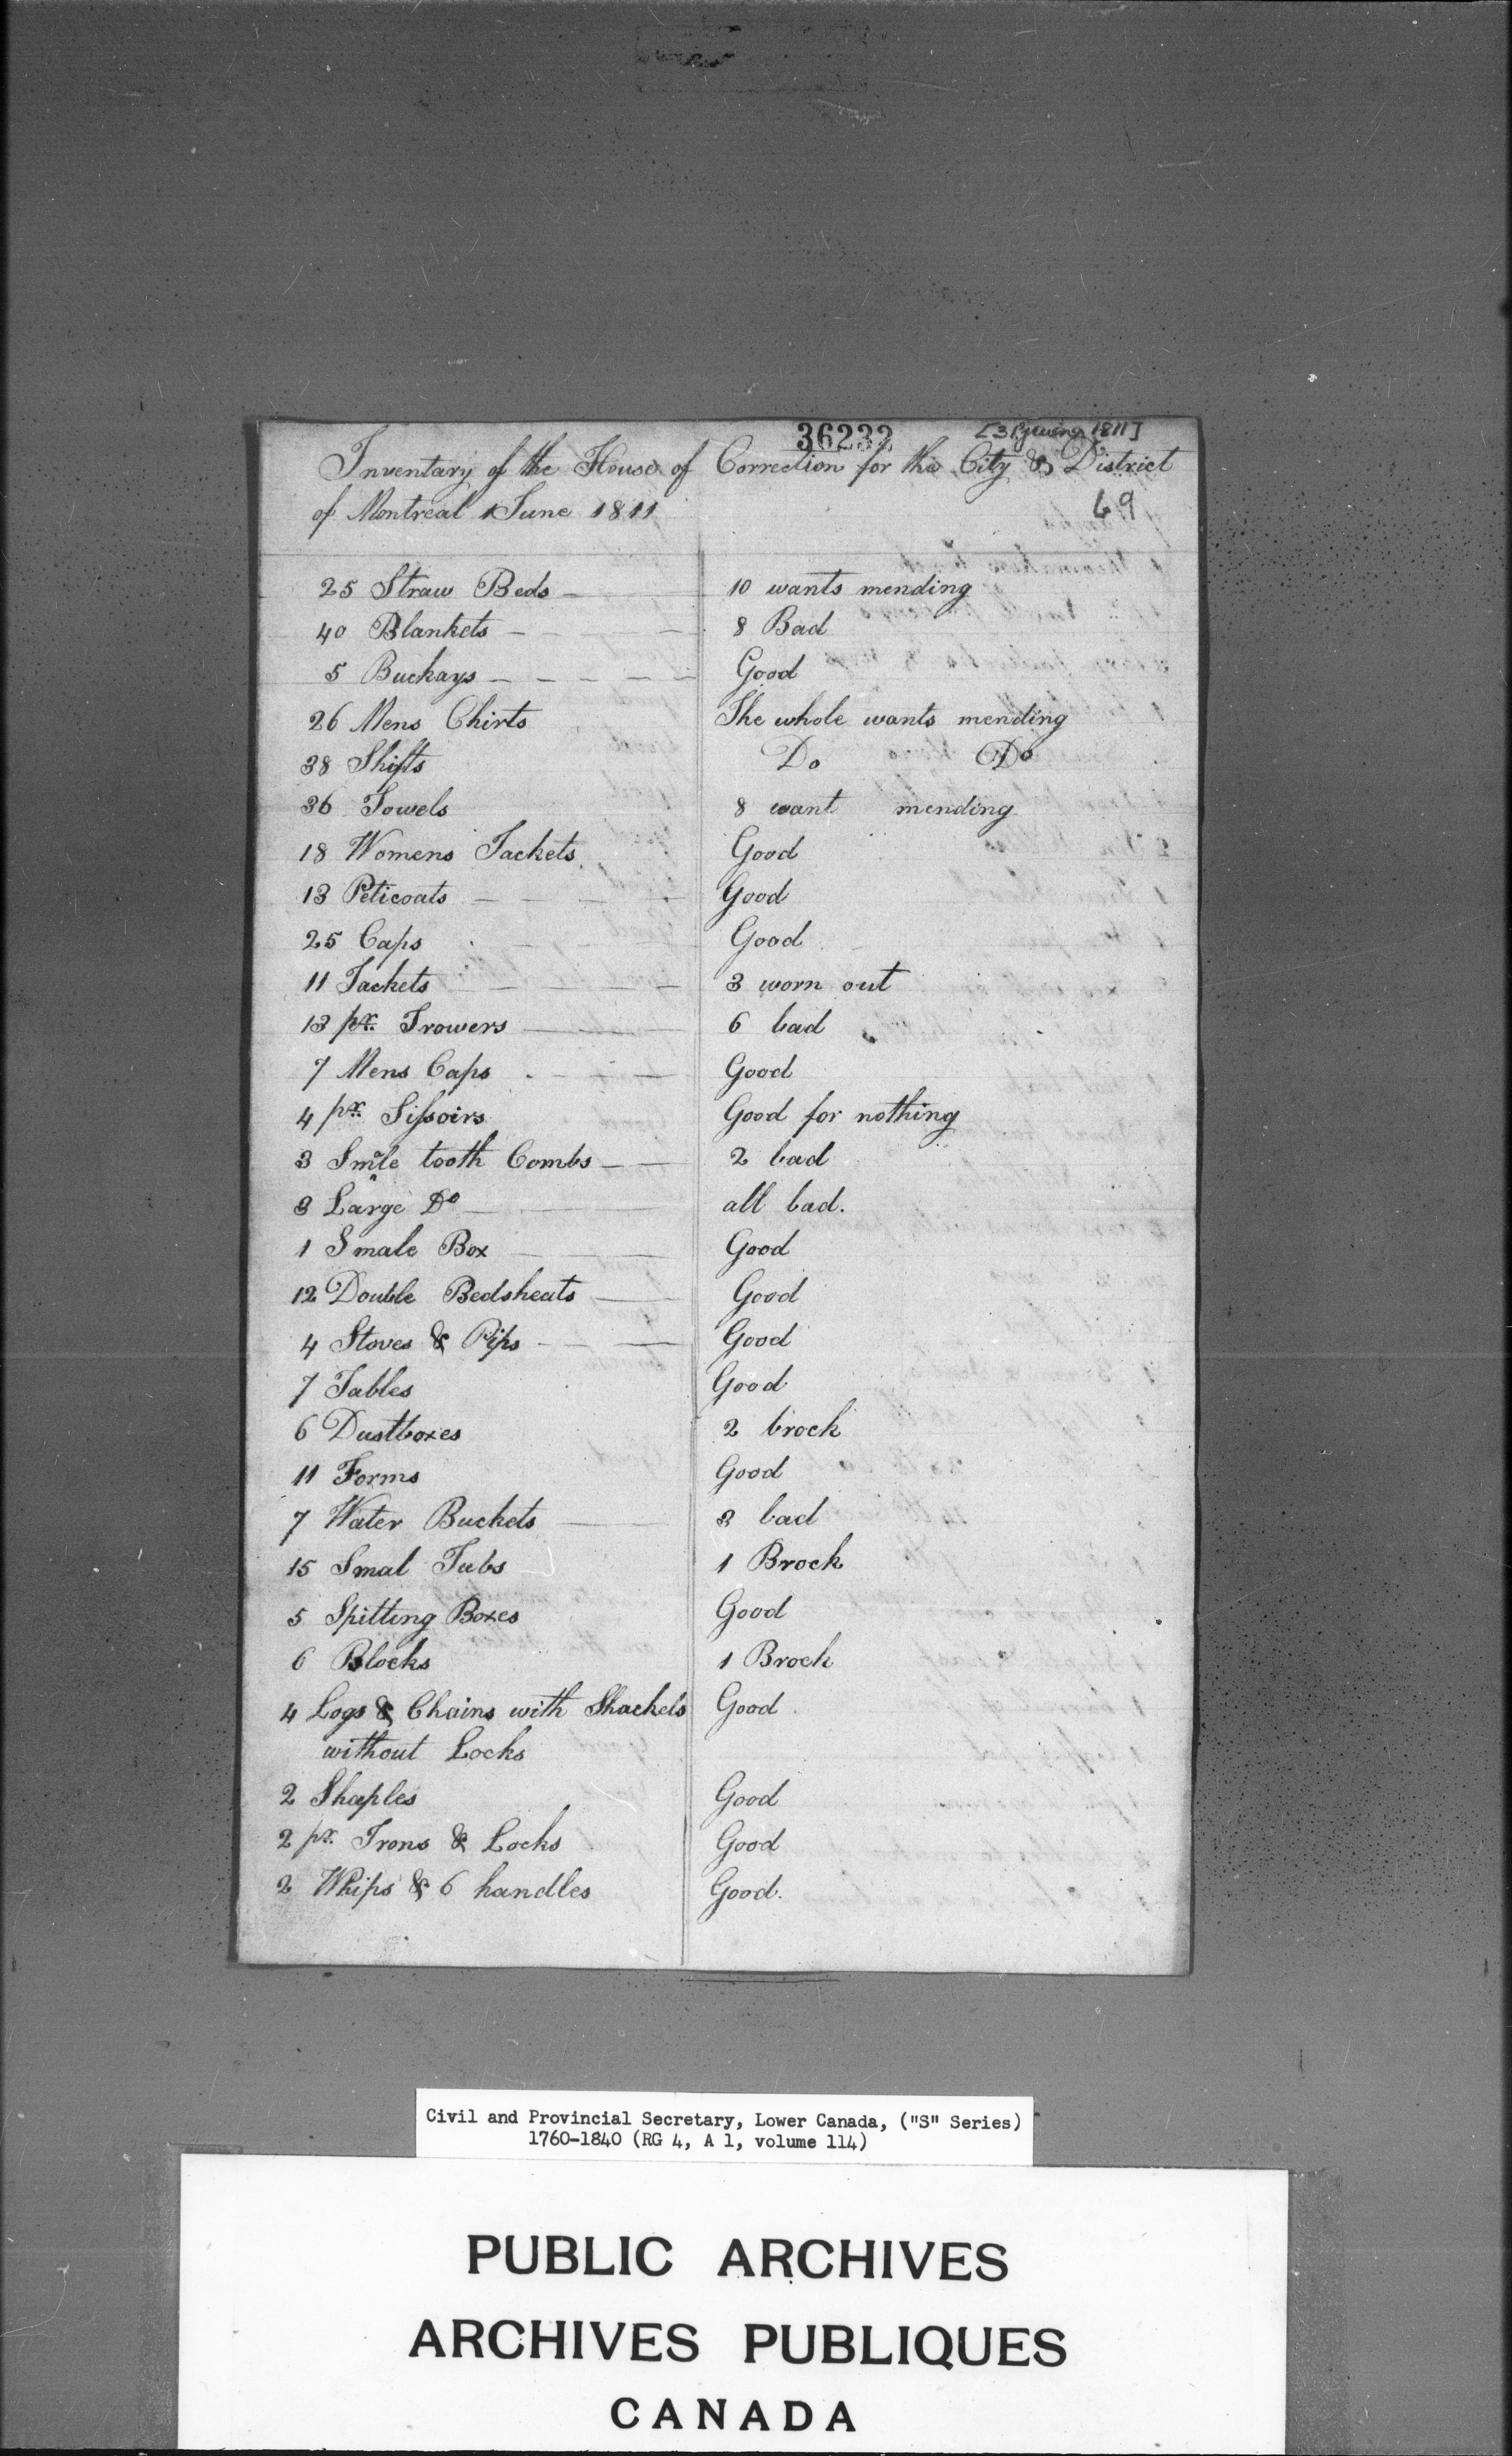 36232
Inventary of the House of Correction for the City & District
of Montreal 1 June 1811
69
25 Straw Beds — 10 wants mending
40 Blankets — — — 8 Bad
5 Buckays — — — — — Good
26 Mens Chirts The whole wants mending
38 Shifts Do Do
36 Towels 8 want mending
18 Womens Jackets Good
13 Peticoats — — — Good
25 Caps — — — Good
11 Jackets — — — — 3 worn out
13 pr. Trowers — — 6 bad
7 Mens Caps — — — Good
4 pr. Sissoirs Good for nothing
3 Smale tooth Combs — — 2 bad
3 Large Do — — all bad.
1 Smale Box — — Good
12 Double Bedsheats — Good
4 Stoves & Pips — — — Good
7 Tables Good
6 Dustboxes 2 brock
11 Forms Good
7 Water Buckets — 3 bad
15 Smal Tubs 1 Brock
5 Spitting Boxes Good
6 Blocks 1 Brock
4 Logs & Chains with Shackels Good
without Locks
2 Shaples Good
2 pr. Irons & Locks Good
2 Whips & 6 handles Good.
Civil and Provincial Secretary, Lower Canada, ("S" Series)
1760-1840 (RG 4, A 1, volume 114)
PUBLIC ARCHIVES
ARCHIVES PUBLIQUES
CANADA